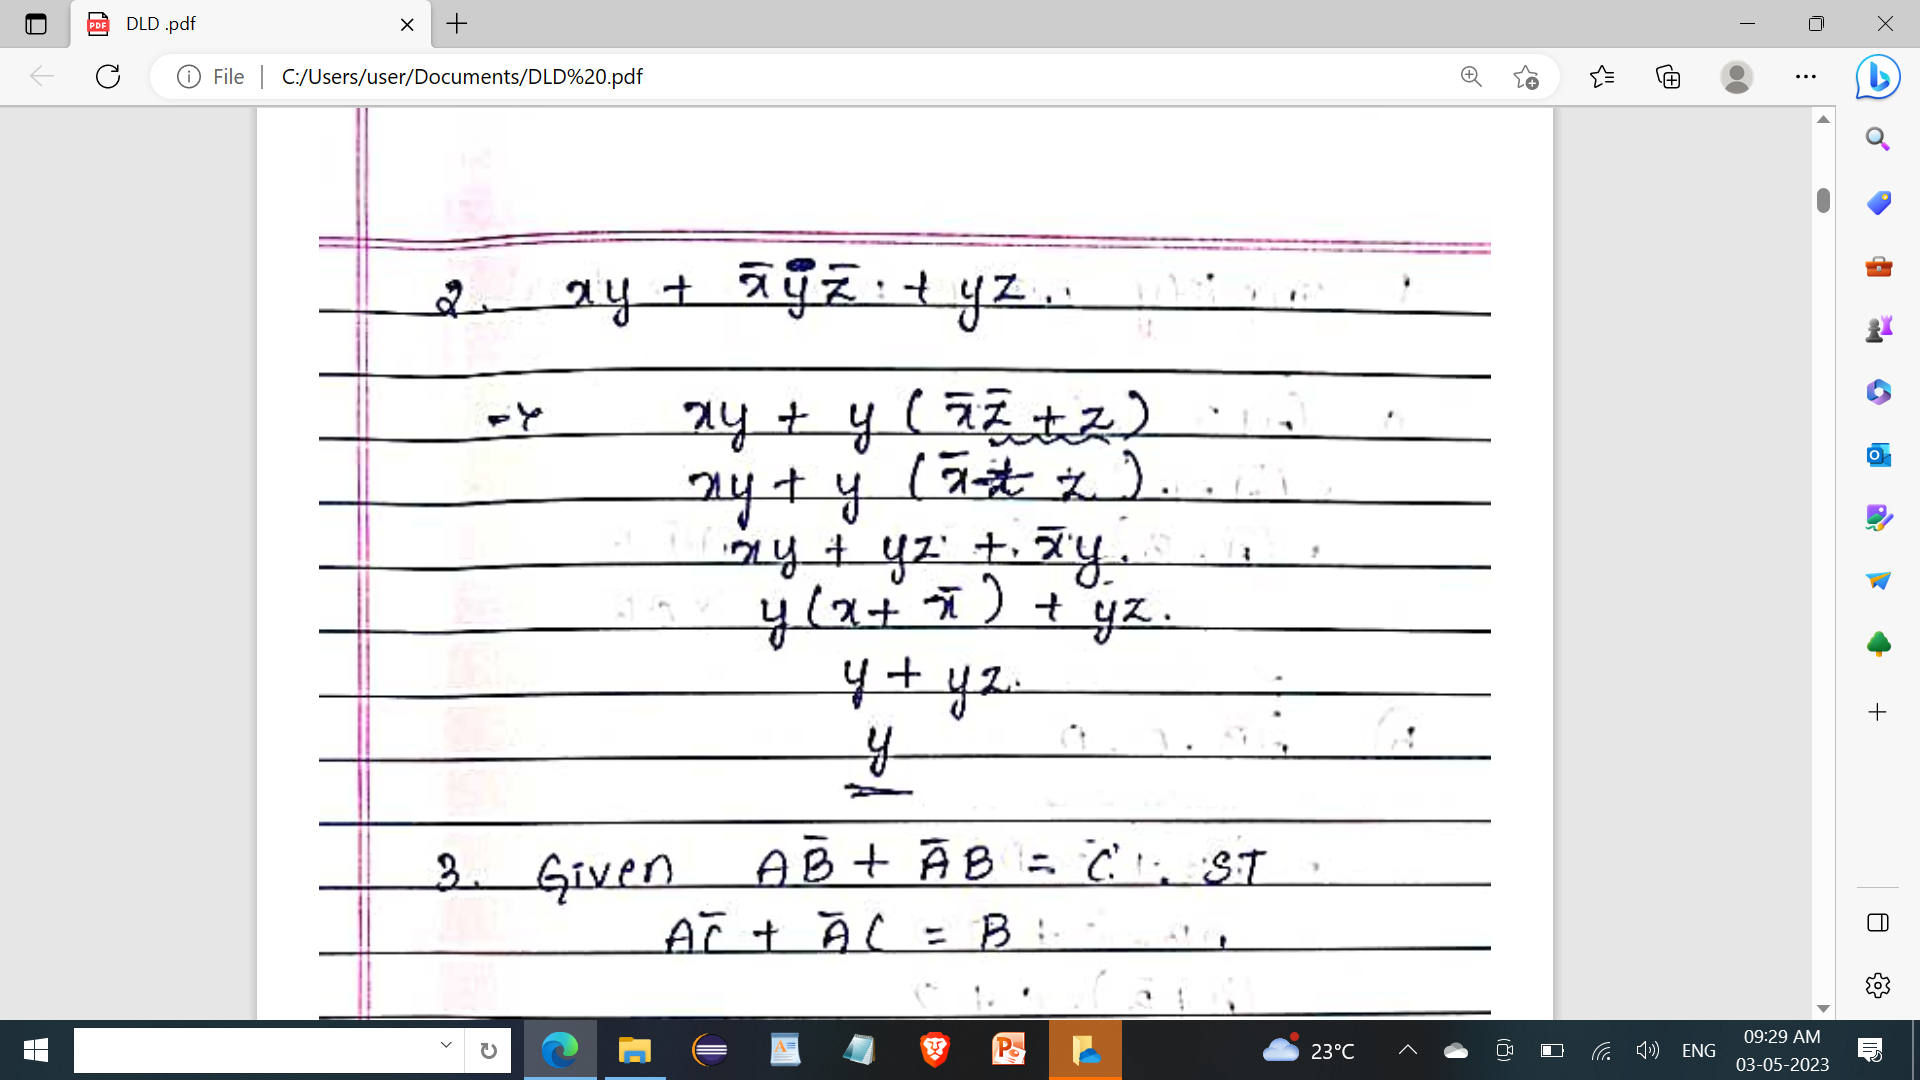 DLD .pdf
File
C:/Users/user/Documents/DLD%20.pdf
2. xy + x̄yz̄ + yz
xy + y (x̄z̄ + z)
xy + y (x̄ + z)
xy + yz + x̄y
y(x + x̄) + yz
y + yz
y
3. Given AB̄ + ĀB = C. ST
AC̄ + ĀC = B
23°C
ENG
09:29 AM
03-05-2023